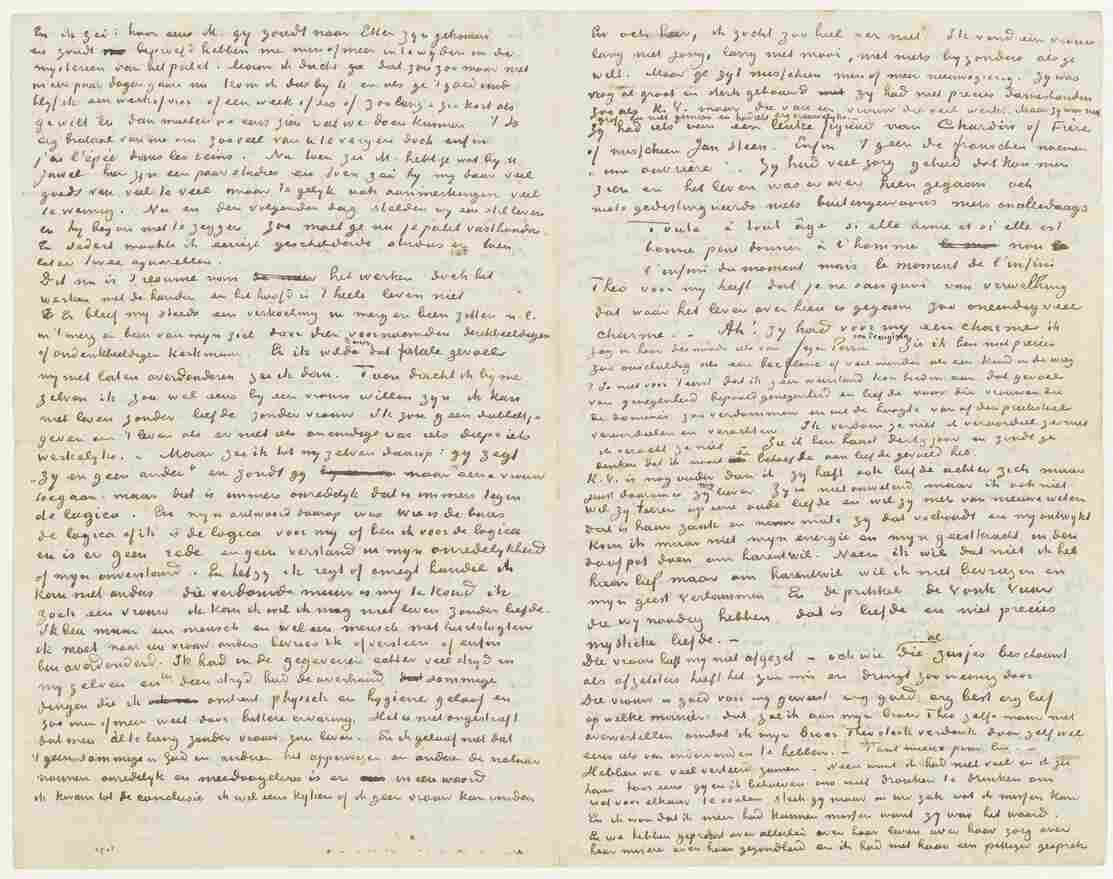 En ik zei: hoor eens M. gy zoudt naar Etten zyn gekomen
en zoudt beproefd hebben me min of meer in te wyden in de
mysterien van het palet. Maar ik dacht ge dat zou zoo maar niet
in een paar dagen gaan nu kom ik dus by U en als ge 't goed vindt
blyf ik een week of vier of een week of zes of zoo lang of zoo kort als
ge wilt En dan moeten we eens zien wat we doen kunnen. 't Is
erg brutaal van me om zooveel van U te vergen doch enfin
j'ai l'épée dans les reins. Nu toen zei M. hebt ge wat by U.
Jawel hier zyn een paar studies en toen zei hy my daar veel
goeds van veel te veel maar te gelyk ook aanmerkingen veel
te weinig. Nu en den volgenden dag stelden wy een stilleven
en hy begon met te zeggen, zoo moet ge nu je palet vasthouden.
En sedert maakte ik eenige geschilderde studies en toen
later twee aquarellen.
Dit nu is 't resumé van het werken doch het
werken met de handen en het hoofd is 't heele leven niet
Er bleef my steeds een verkoeling in merg en been zitten n.l.
in 't merg en been van myn ziel door dien voornoemden denkbeeldigen
of ondenkbeeldigen kerkmuur. En ik wilde me door dat fatale gevoel
my niet laten overdonderen zei ik dan. Toen dacht ik by me
zelven ik zou wel eens by een vrouw willen zyn ik kan
niet leven zonder liefde zonder vrouw Ik zou geen dubbeltje
geven om 't leven als er niet iets oneindigs was iets dieps iets
werkelyks. – Maar zei ik tot my zelven daarop: gy zegt
"zy en geen ander" en zoudt gy naar eene vrouw
toegaan. maar dit is immers onredelyk dat is immers tegen
de logica. En myn antwoord daarop was Wie is de baas
de logica of ik is de logica voor my of ben ik voor de logica
en is er geen rede en geen verstand in myn onredelykheid
of myn onverstand. En hetzy ik regt of onregt handel ik
kan niet anders die verdomde muur is my te koud ik
zoek een vrouw ik kan ik wil ik mag niet leven zonder liefde.
Ik ben maar een mensch en wel een mensch met hartstogten
ik moet naar een vrouw anders bevries ik of versteen of enfin
ben overdonderd. Ik had in de gegevens echter veel stryd in
my zelven en in dien stryd had de overhand sommige
dingen die ik omtrent physiek en hygiene geloof en
zoo min of meer weet door bittere ervaring. Het is niet ongestraft
dat men al te lang zonder vrouw zou leven. En ik geloof niet dat
't geen sommigen God en anderen het opperwezen en anderen de natuur
noemen onredelyk en meedoogeloos is en in een woord
ik kwam tot de conclusie ik wil eens kyken of ik geen vrouw kan vinden
En och heer, ik zocht zoo heel ver niet. Ik vond een vrouw
lang niet jong, lang niet mooi, niet niets byzonders als ge
wilt. Maar ge zyt misschien min of meer nieuwsgierig. Zy was
vrij al groot en sterk gebouwd zy had niet precies dameshanden
zooals K.V. maar die van een vrouw die veel werkt. Maar zy was niet
grof en niet gemeen en had iets erg vrouwelyks.
Zy had iets van een leuke figuur van Chardin of Frère
of misschien Jan Steen. Enfin 't geen de franschen noemen
"une ouvrière". Zy had veel zorg gehad dat kon men
zien en het leven was er over heen gegaan och
niets gedistingueerds niets buitengewoons niets onalledaags
Toute à tout âge si elle aime et si elle est
bonne peut donner à l'homme non
l'infini du moment mais le moment de l'infini
Theo voor my heeft dat je ne sais quoi van verwelking
dat waar het leven over heen is gegaan zoo oneindig veel
charme. – Ah! zy had voor my een charme ik
zag in haar desnoods iets van Feyen Perrin van Perugino. Zie ik ben niet precies
zoo onschuldig als een bec blanc of veel minder als een kind in de wieg
't Is niet voor 't eerst dat ik geen weerstand kon bieden aan dat gevoel
van genegenheid bepaald genegenheid en liefde voor die vrouwen die
de dominés zoo verdommen en uit de hoogte van af den preekstoel
veroordeelen en verachten. Ik verdom ze niet ik veroordeel ze niet
ik veracht ze niet – Zie ik ben haast dertig jaar en zoudt ge
denken dat ik nooit behoefte aan liefde gevoeld heb.
K.V. is nog ouder dan ik zy heeft ook liefde achter zich maar
juist daarom is zy me liever. Zy is niet onwetend maar ik ook niet.
wil zy teeren op eene oude liefde en wil zy niet van nieuwe weten
dat is haar zaak en zy dat voortzet en my ontwykt
kan ik maar niet myn energie en myn geestkracht in den
doofpot doen om harentwil. Neen ik wil dat niet ik heb
haar lief maar om harentwil wil ik niet bevriezen en
myn geest verlammen En de prikkel de vonk vuur
die wy noodig hebben, dat is liefde en niet precies
mystieke liefde. –
Die vrouw heeft my niet afgezet – och wie al die zusjes beschouwt
als afzetsters heeft het zoo mis en dringt zoo weinig door
Die vrouw is goed voor my geweest erg goed, erg best erg lief
op welke manier. dat zal ik aan myn broer Theo zelfs maar niet
oververtellen omdat ik myn broer Theo sterk verdenk daar zelf wel
eens iets van ondervonden te hebben. – Tant mieux pour lui. –
Hebben we veel verteerd samen – Neen want ik had niet veel en ik zei
haar hoor eens gy en ik behoeven ons niet dronken te drinken om
wat voor elkaar te voelen steek gy maar in uw zak wat ik missen kan
En ik wou dat ik meer had kunnen missen want zy was het waard.
En we hebben gepraat over allerlei over haar leven over haar zorg over
haar misère over haar gezondheid en ik had met haar een pittiger gesprek